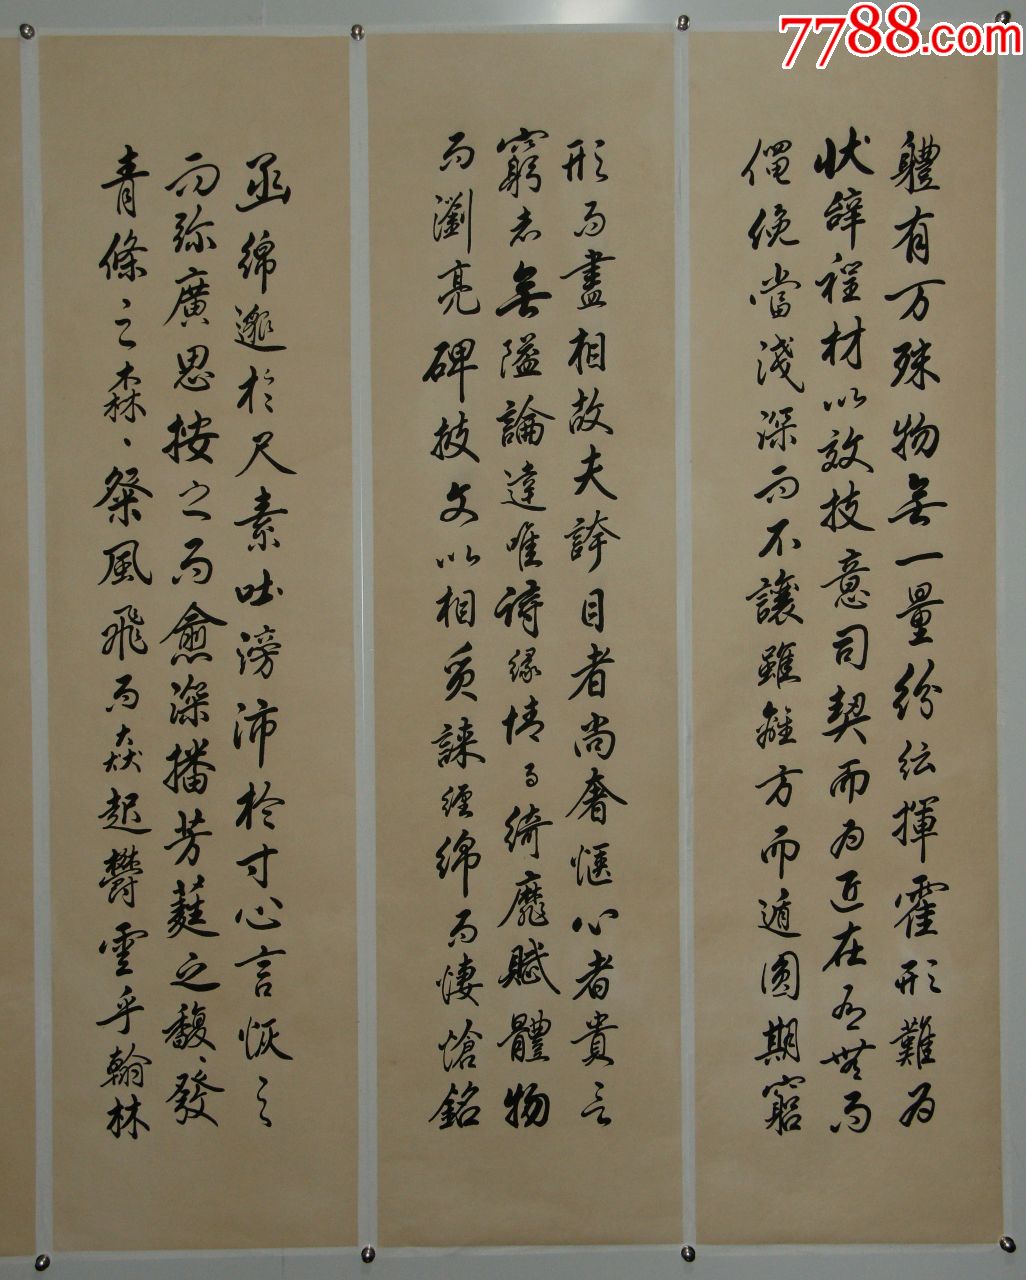 7788.com
體有万殊物無一量紛紜揮霍形難為
狀辭程材以效技意司契而為匠在有無而
僶俛當淺深而不讓雖離方而遁圓期窮
形而盡相故夫誇目者尚奢愜心者貴言
窮者無隘論達唯詩緣情而綺靡賦體物
而瀏亮碑披文以相質誄纏綿而悽愴銘
函綿邈於尺素吐滂沛於寸心言恢之
而弥廣思按之而愈深播芳蕤之馥々發
青條之森々粲風飛而猋起鬱雲乎翰林